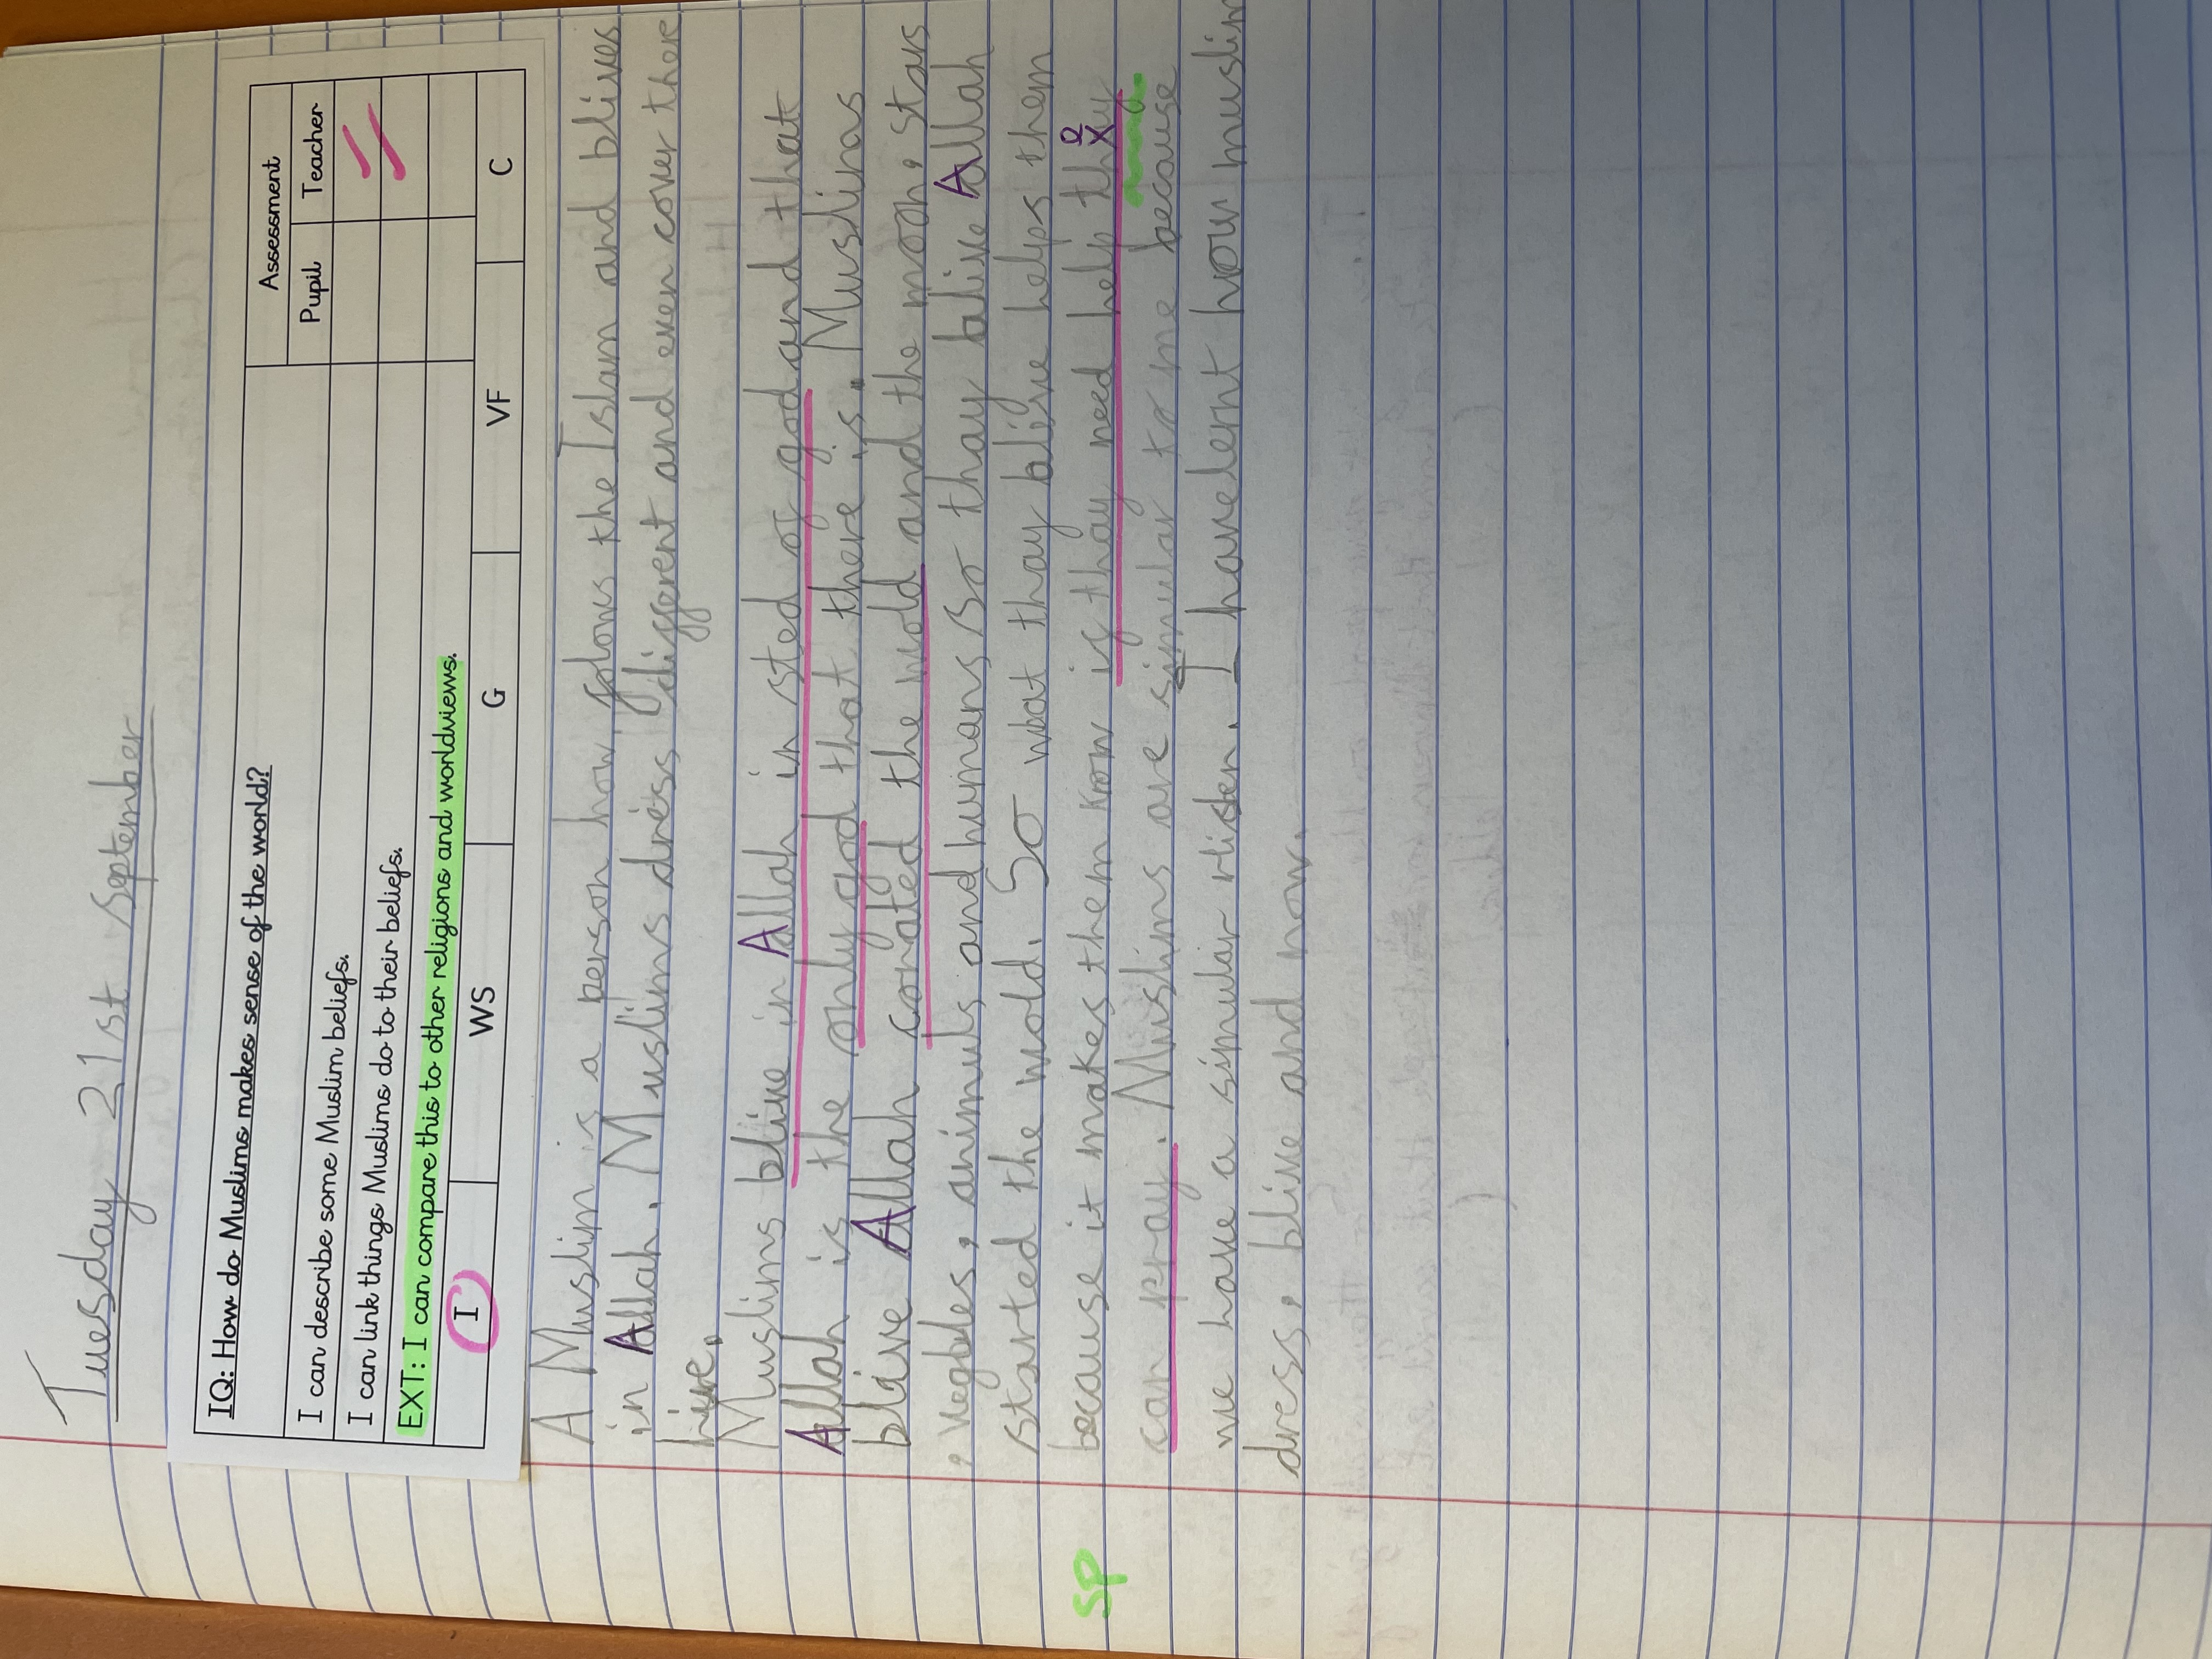 Tuesday 21st September
IQ: How do Muslims makes sense of the world?
Assessment
Pupil Teacher
I can describe some Muslim beliefs.
I can link things Muslims do to their beliefs.
EXT: I can compare this to other religions and worldviews.
I WS G VF C
A Muslim is a person how folows the Islam and blives
in Allah. Muslims dress different and even cover there
hire.
Muslims blive in Allah in sted of god and that
Allah is the only god that there is. Muslims
blive Allah corated the wold and the moon, stars
, vegbles, animuls, and humans so thay blive Allah
started the wold. So what thay blive helps them
SP because it makes them know if thay need help they
can pray. Muslims are simular to me because
we have a simular risten. I havelent how muslim
dress, blive and how.